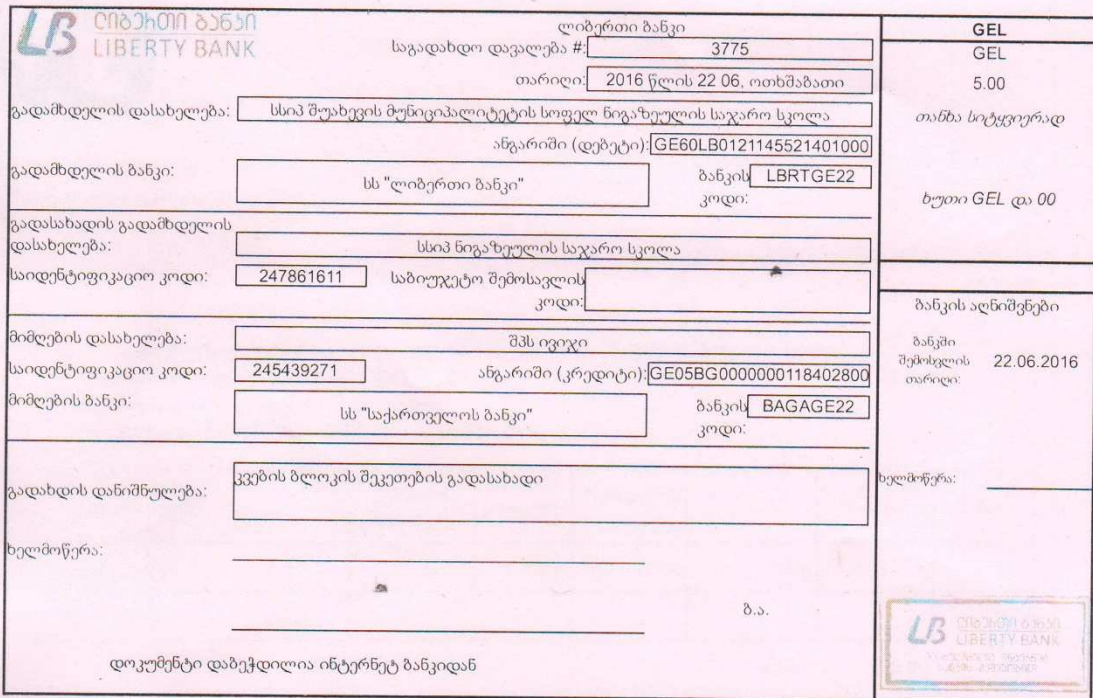 ლიბერთი ბანკი
LIBERTY BANK
ლიბერთი ბანკი
საგადახდო დავალება #: 3775
თარიღი: 2016 წლის 22 06, ოთხშაბათი
გადამხდელის დასახელება: სსიპ შუახევის მუნიციპალიტეტის სოფელ ნიგაზეულის საჯარო სკოლა
ანგარიში (დებეტი): GE60LB0121145521401000
გადამხდელის ბანკი: სს "ლიბერთი ბანკი" ბანკის კოდი: LBRTGE22
გადასახადის გადამხდელის
დასახელება: სსიპ ნიგაზეულის საჯარო სკოლა
საიდენტიფიკაციო კოდი: 247861611 საბიუჯეტო შემოსავლის
კოდი:
მიმღების დასახელება: შპს ივიჯი
საიდენტიფიკაციო კოდი: 245439271 ანგარიში (კრედიტი): GE05BG0000000118402800
მიმღების ბანკი: სს "საქართველოს ბანკი" ბანკის კოდი: BAGAGE22
გადახდის დანიშნულება: კვების ბლოკის შეკეთების გადასახადი
ხელმოწერა:
ბ.ა.
დოკუმენტი დაბეჭდილია ინტერნეტ ბანკიდან
GEL
GEL
5.00
თანხა სიტყვიერად
ხუთი GEL და 00
ბანკის აღნიშვნები
ბანკში
შემოსვლის
თარიღი: 22.06.2016
ხელმოწერა:
ლიბერთი ბანკი
LIBERTY BANK